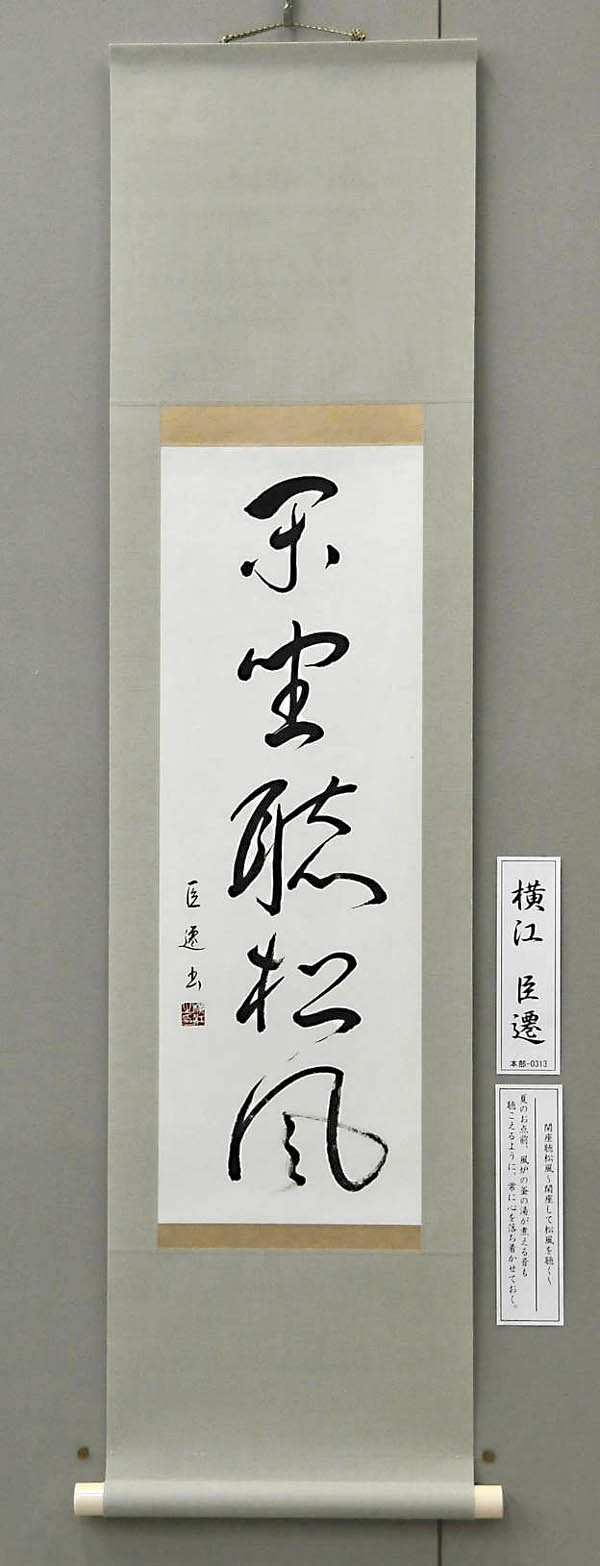 閑坐聴松風
臣遷書
横江 臣遷
本部-0313
閑座聴松風~閑座して松風を聴く~
夏のお点前、風炉の釜の湯が煮える音も
聴こえるように、常に心を落ち着かせておく。